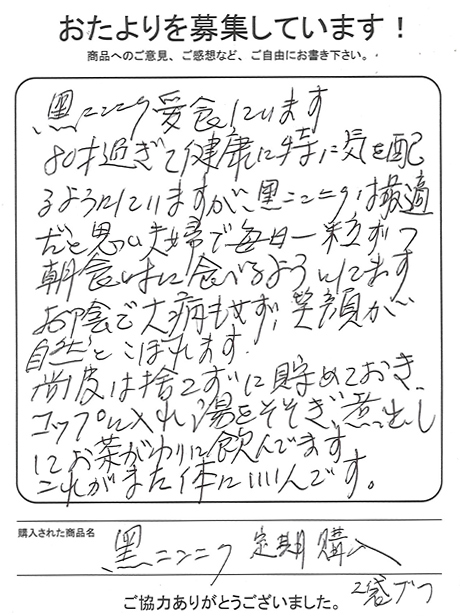 おたよりを募集しています！
商品へのご意見、ご感想など、ご自由にお書き下さい。
黒ニンニク愛食しています
80才過ぎて健康に特に気を配
るようにしていますが、黒ニンニクは最適
だと思い夫婦で毎日一粒ずつ
朝食時に食べるようにしてます
お陰で大病もせず、笑顔が
自然とこぼれます.
尚皮は捨てずに貯めておき、
コップに入れ湯をそそぎ、煮出し
にお茶がわりに飲んでます
これがまた体にいいんです。
購入された商品名
黒ニンニク 定期購入
2袋づつ
ご協力ありがとうございました。